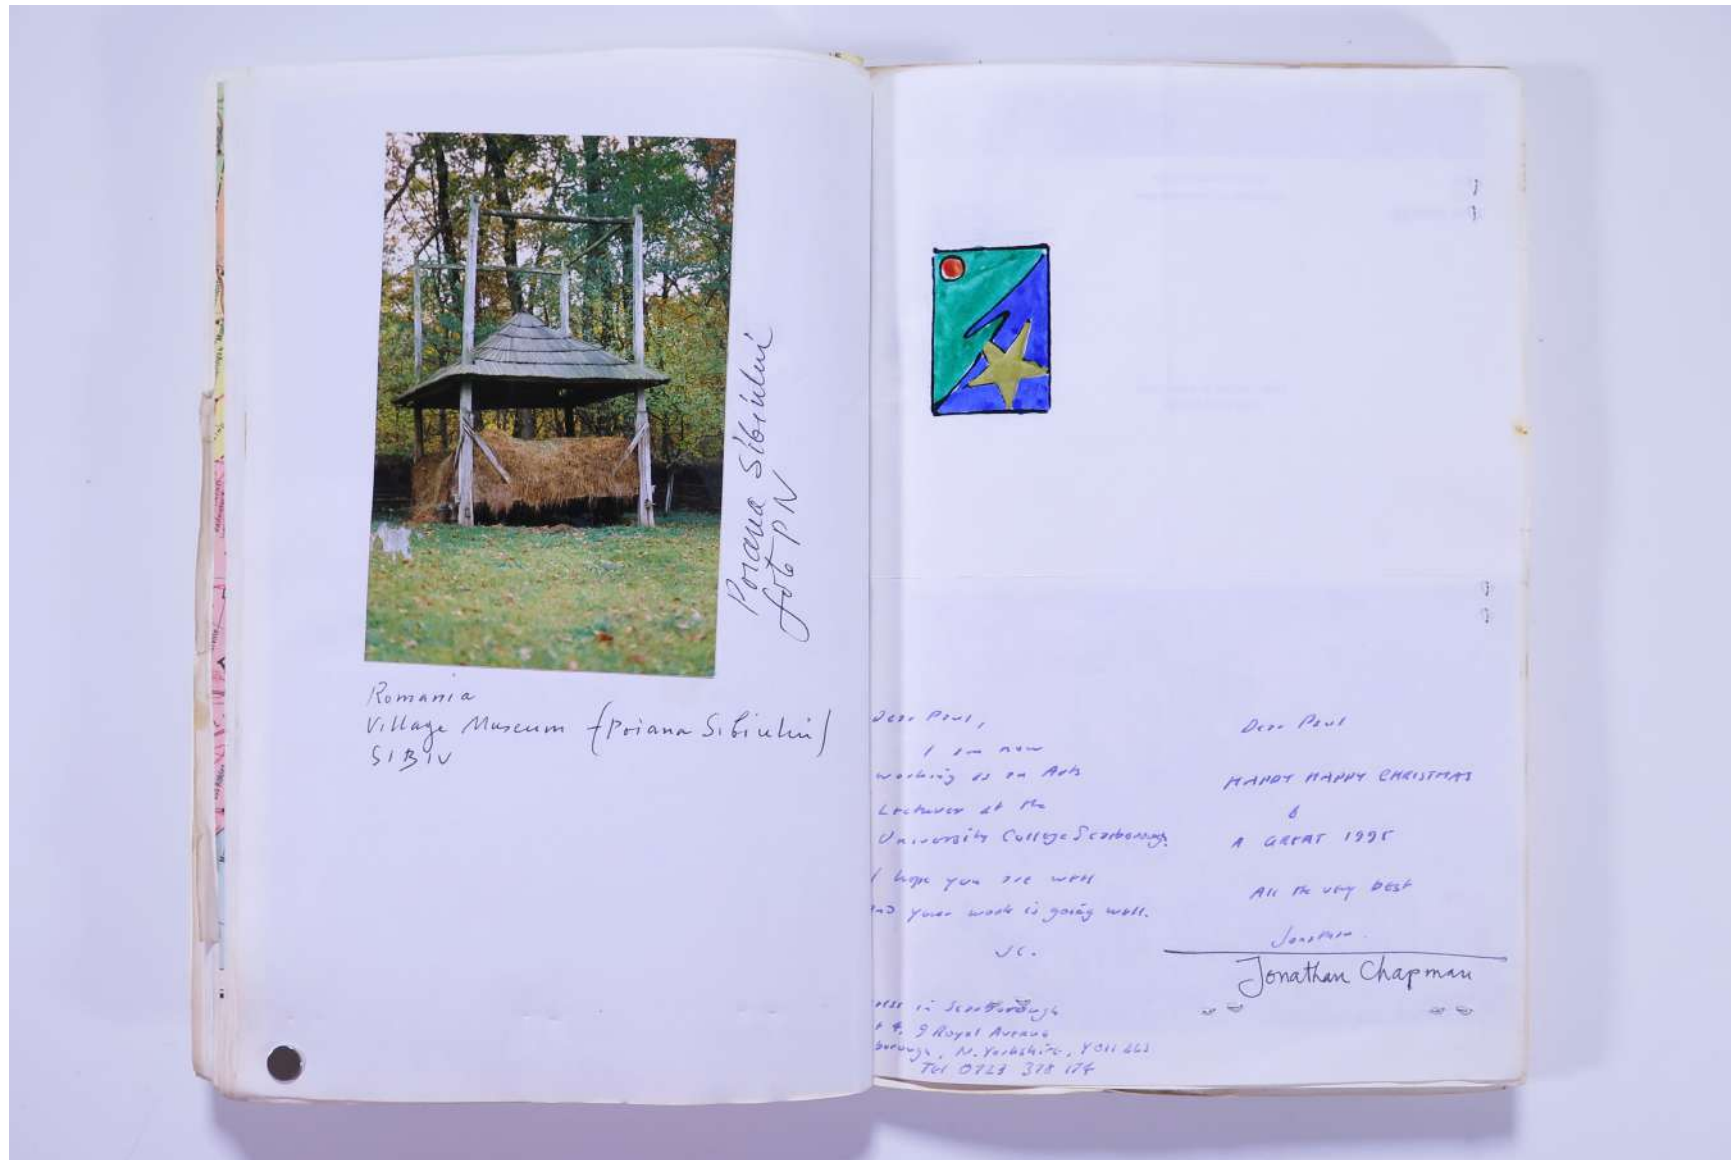 Poiana Sibiului
foto PN
Romania
Village Museum (Poiana Sibiului)
SIBIU
Dear Paul,
I am now
working as an Arts
Lecturer at the
University College Scarborough.
I hope you are well
and your work is going well.
JC.
in Scarborough
9 Royal Avenue
borough, N. Yorkshire, YO11
Tel 0723
Dear Paul
HAPPY HAPPY CHRISTMAS
&
A GREAT 1995
All the very best
Jonathan.
Jonathan Chapman